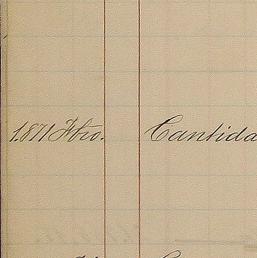 1871 Fbro. Cantida